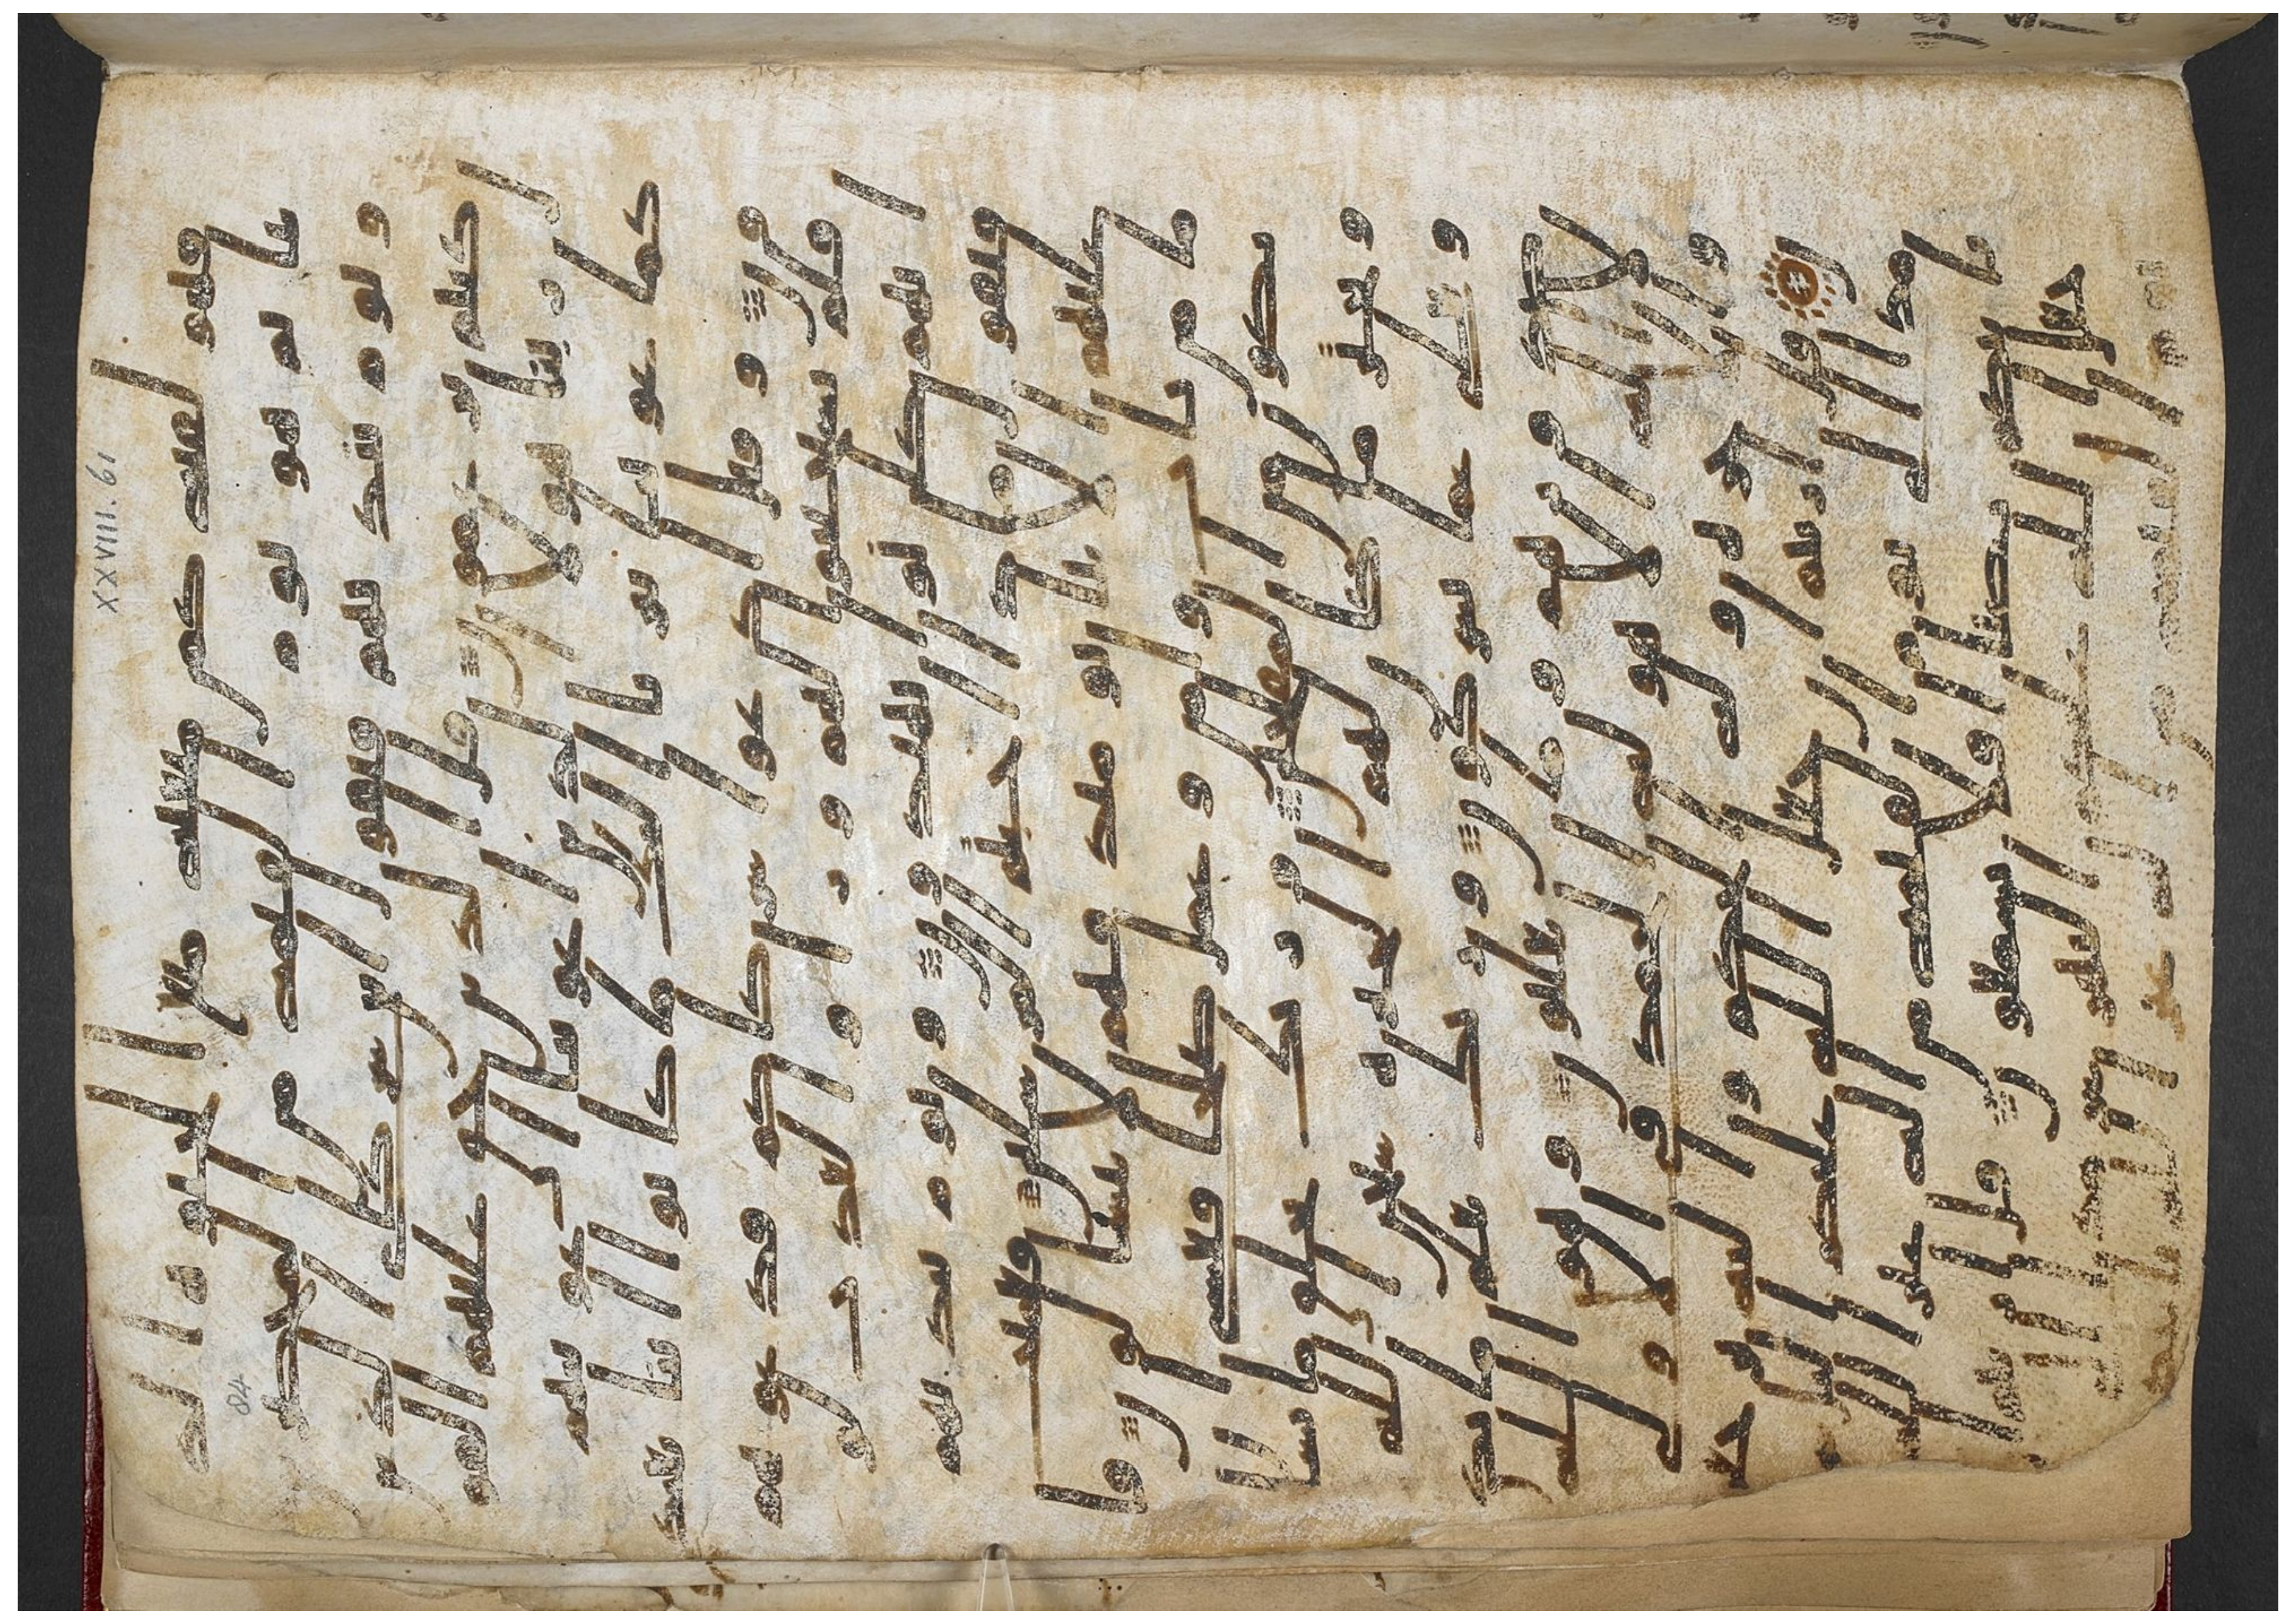 فهو لقيه كمن متعنه متع الحيوه الد
نيا ثم هو يوم القيمه من المحضر
ين ويوم ينديهم فيقول اين شركاى الذين
كنتم تزعمون قال الذين حق عليهم القو
ل ربنا هولا الذين اغوينا اغوينهم
كما غوينا تبرانا اليك ما كانوا ايانا يعبد
ون وقيل ادعوا شركاكم فدعوهم
فلم يستجيبوا لهم وراوا العذب
لو انهم كانوا يهتدون ويوم يند يهم
فيقول ماذا اجبتم المرسلين فعميت
عليهم الانبا يومئذ فهم لا يتسالون فا
ما من تاب وامن وعمل صلحا فعسى
ان يكون من المفلحين وربك يخلق ما يشا
و يختر ما كان لهم الخيره سبحن الله
و تعلى عما يشركون وربك يعلم ما تكن
صدورهم وما يعلنون وهو الله
لا اله الا هو له الحمد فى الاولى و
الاخره وله الحكم واليه ترجعو
ن قل اريتم ان جعل الله عليكم اليل
سرمدا الى يوم القيمه من اله غير
الله ياتيكم بضيا افلا تسمعون قل ا
ريتم ان جعل الله
XXVIII. 61
84